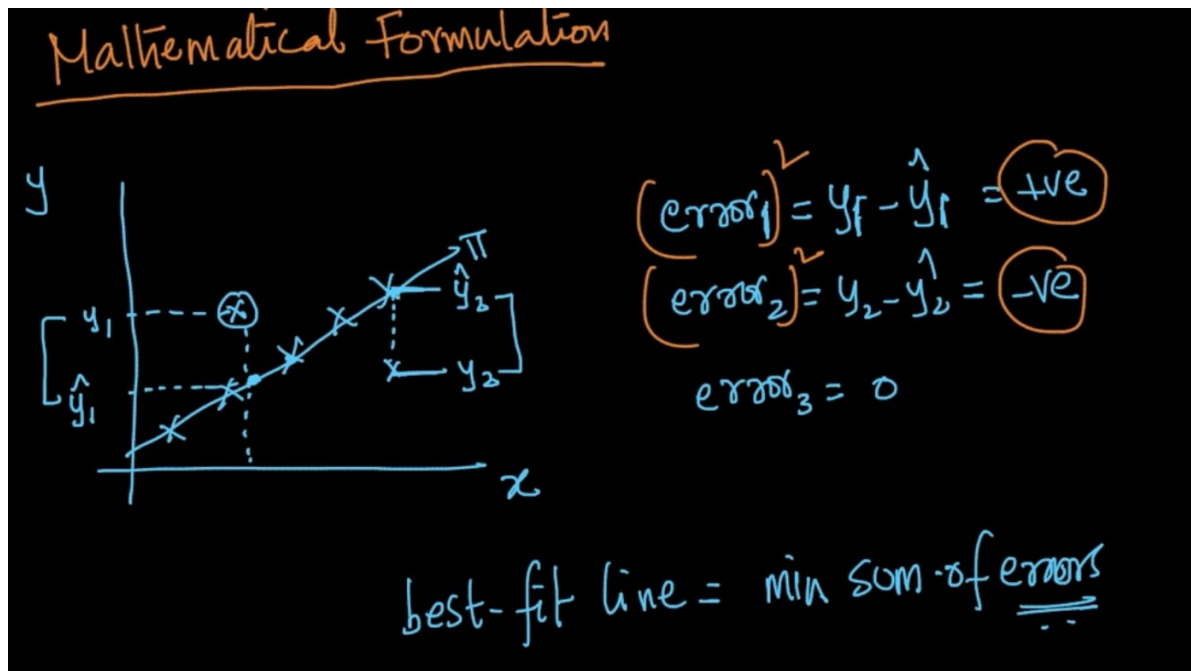 Mathematical Formulation
y
π
y₁
ŷ₁
ŷ₂
y₂
x
(error₁)² = y₁ - ŷ₁ = +ve
(error₂)² = y₂ - ŷ₂ = -ve
error₃ = 0
best-fit line = min sum of errors